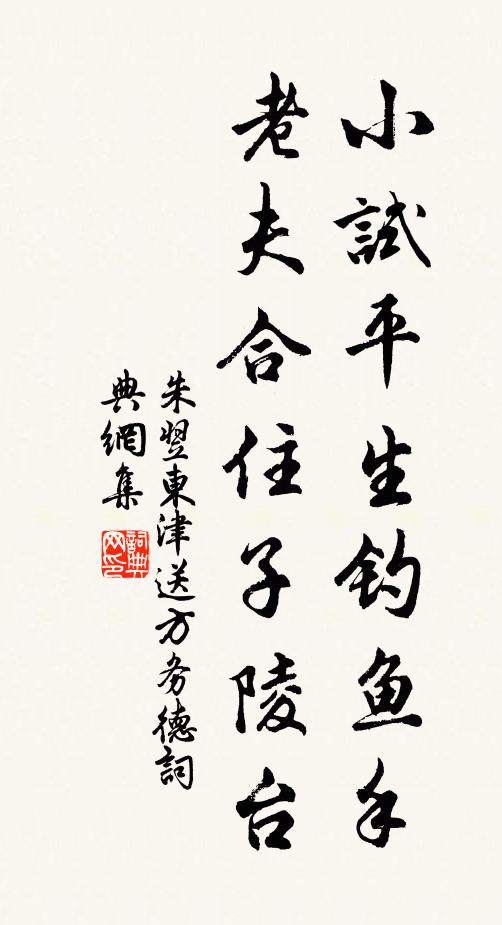 小試平生釣魚手
老夫合住子陵台
朱翌東津送方务德詞
典網集
詞典网印